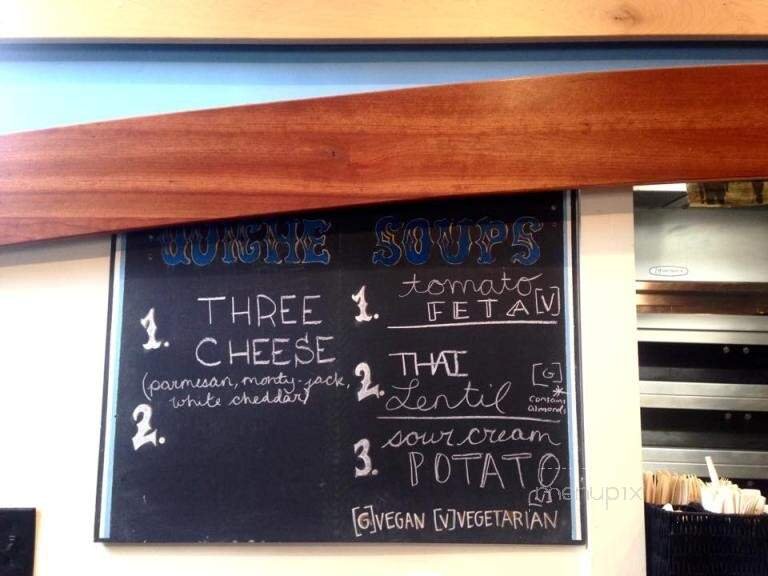 QUICHE
1. THREE
CHEESE
(parmesan, monty-jack,
white cheddar)
2.
SOUPS
1. tomato
FETA [V]
2. THAI [G]
Lentil *contains
almonds
3. sour cream
POTATO
[G] VEGAN [V] VEGETARIAN
menupix